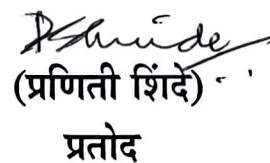 (प्रणिती शिंदे)
प्रतोद